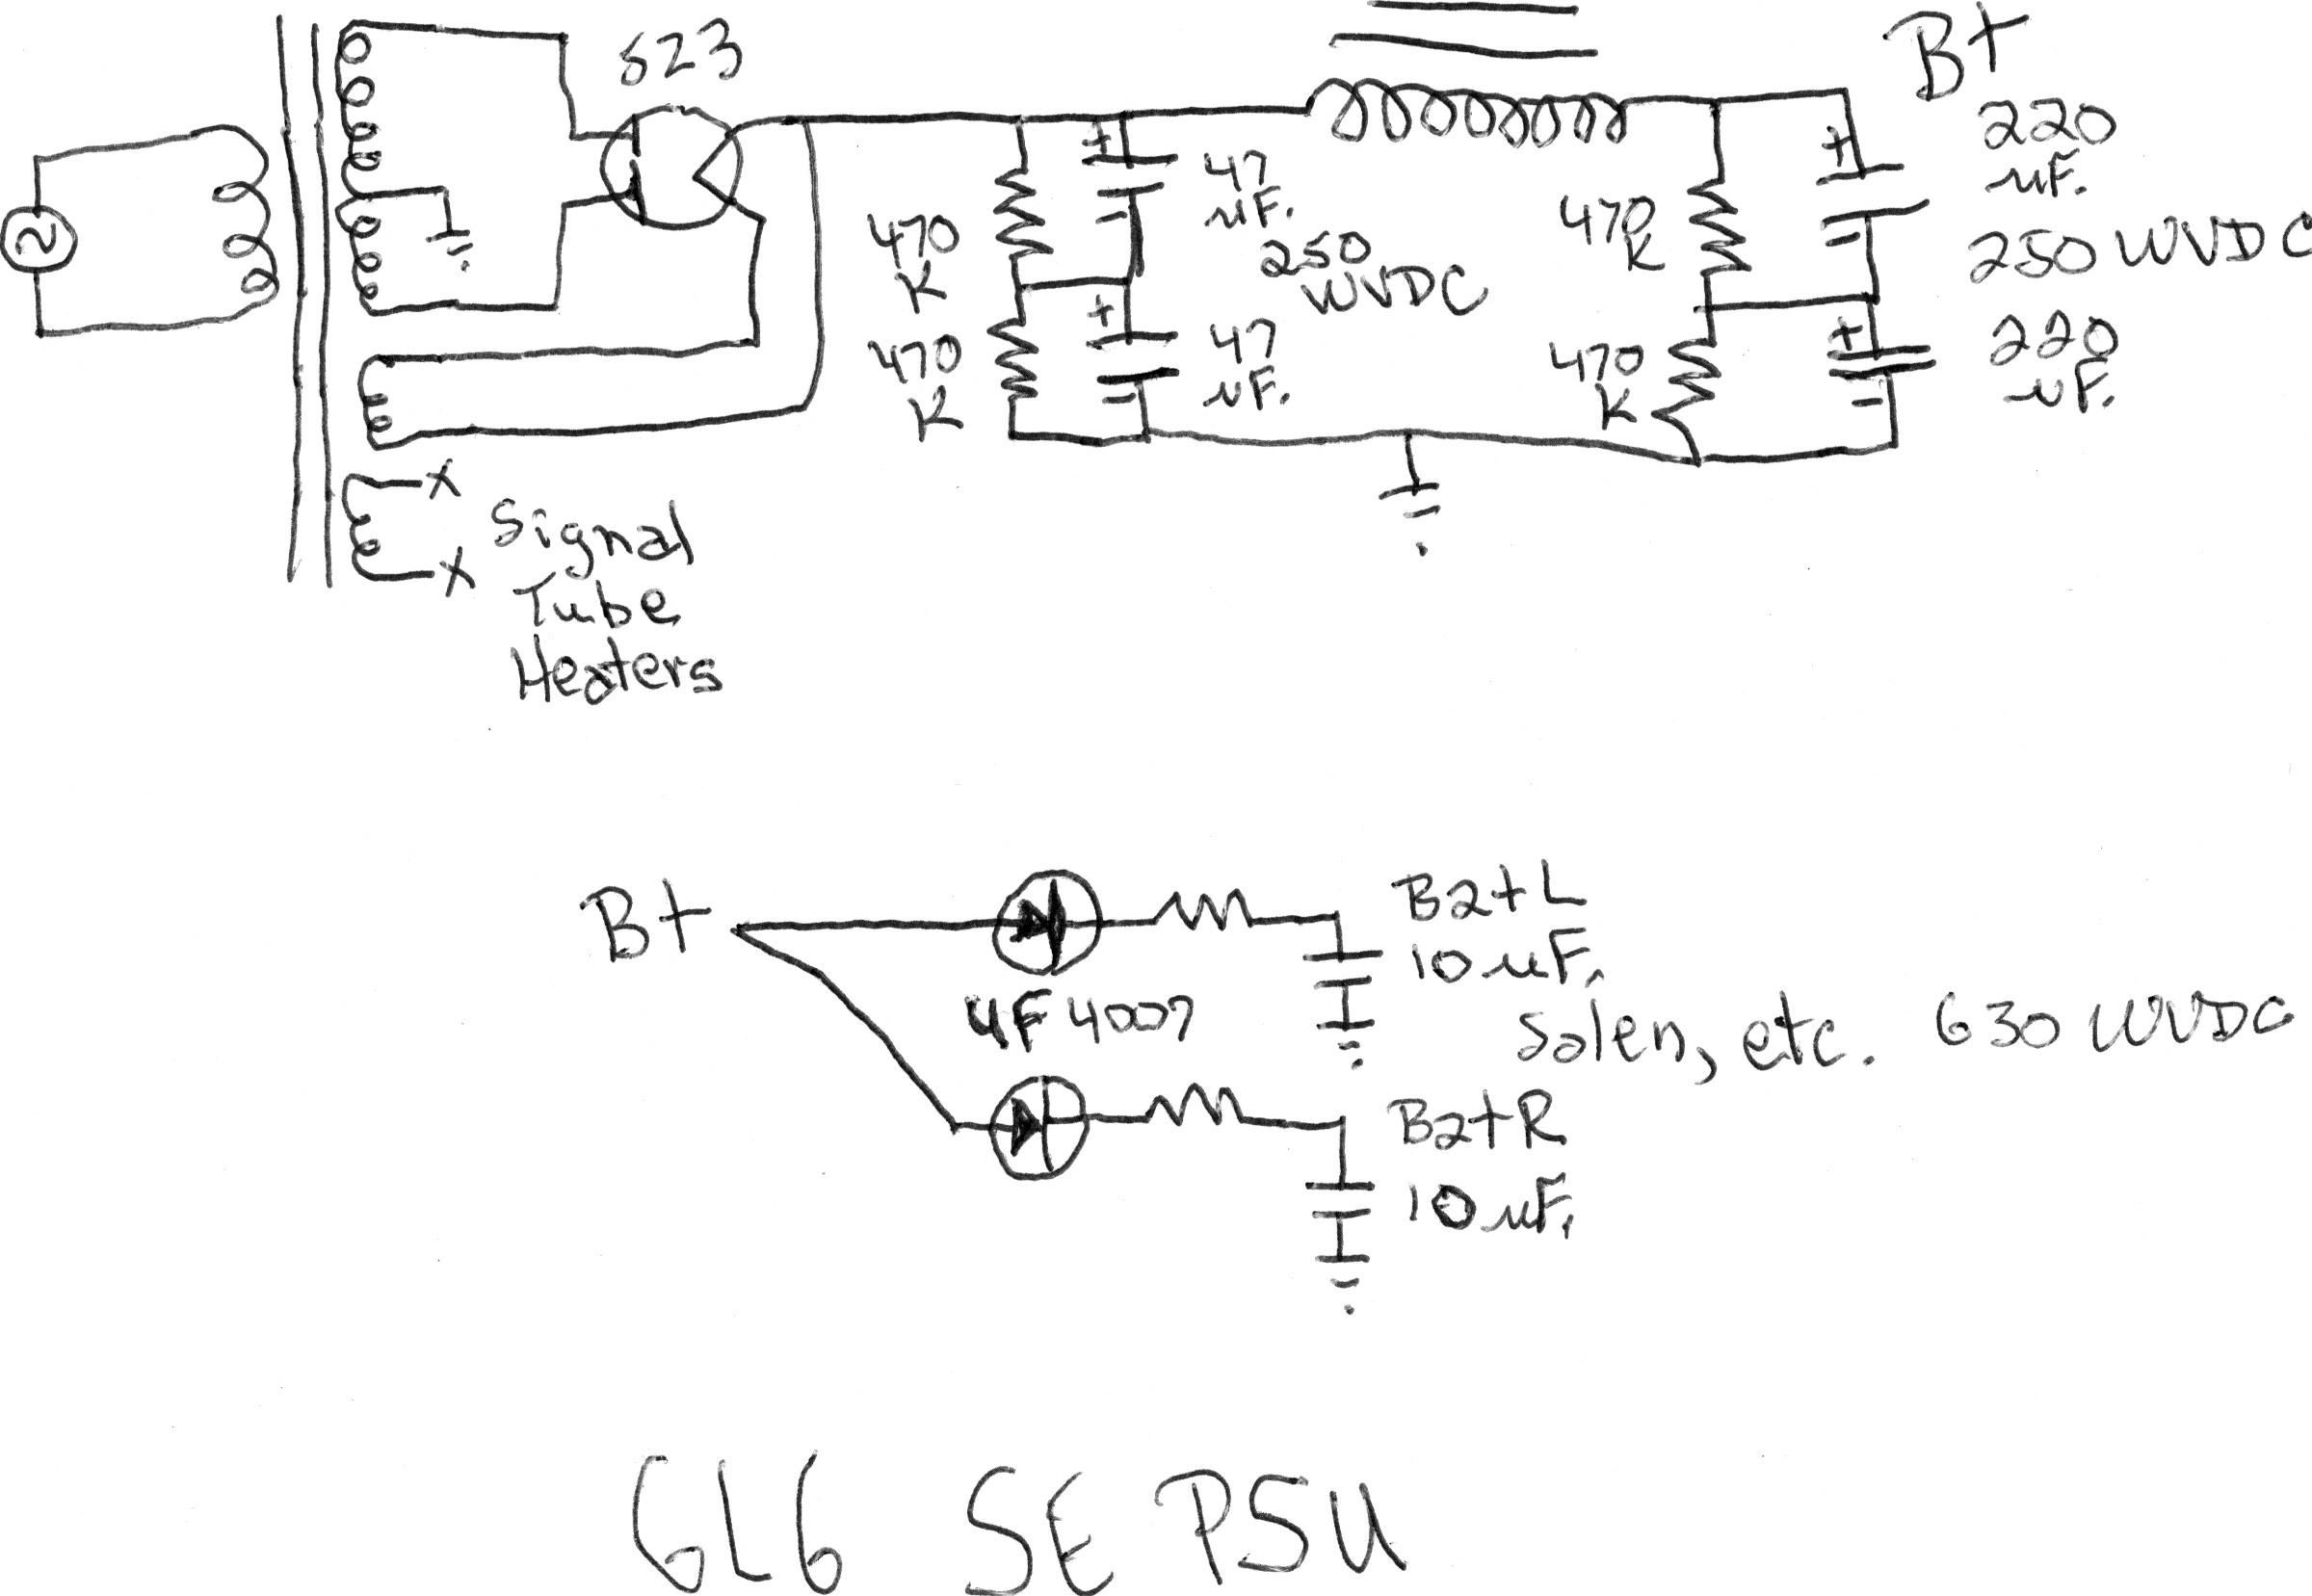 5Z3
B+
+
47
uF.
-
470
K
250
WVDC
+
47
uF.
-
470
K
+
220
uF.
-
250 WVDC
470
K
+
220
uF.
-
470
K
X
X
Signal
Tube
Heaters
B+
UF4007
B2+L
10 uF.
Solen, etc. 630 WVDC
B2+R
10 uF.
6L6 SE PSU